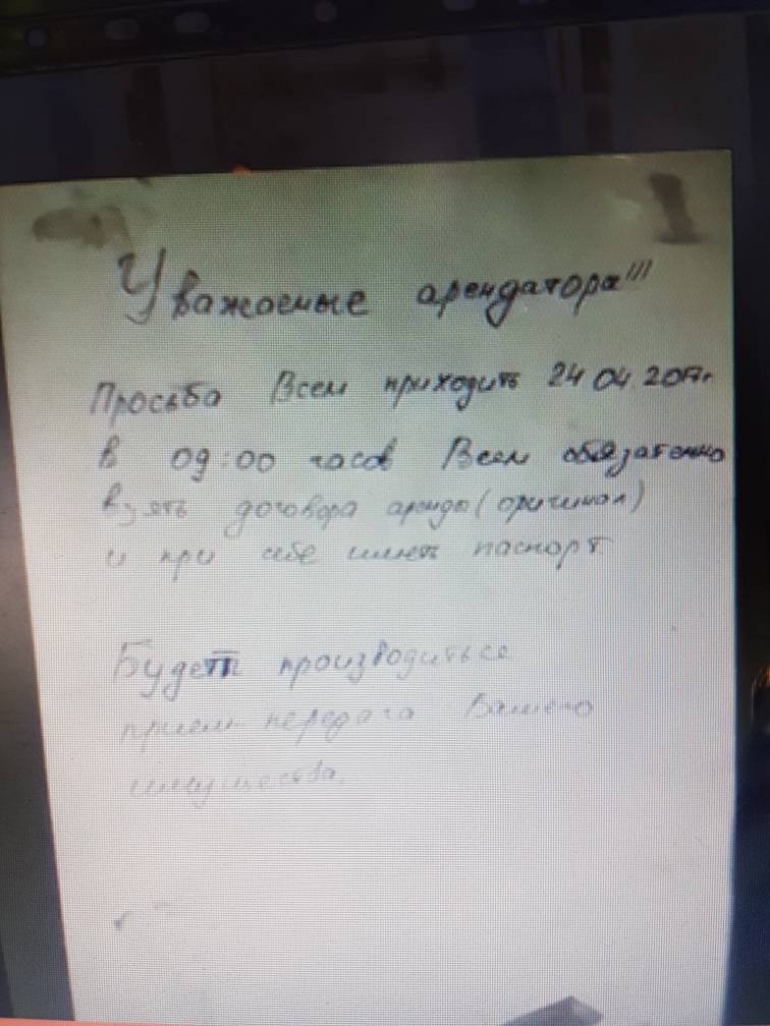 Уважаемые арендатора!!!
Просьба Всем приходить 24 04. 2017г
в 09:00 часов Всем обязателно
взять договора арендо (оригинал)
и при себе иметь паспорт.
Будет производиться
прием-передача Вашего
имущества.